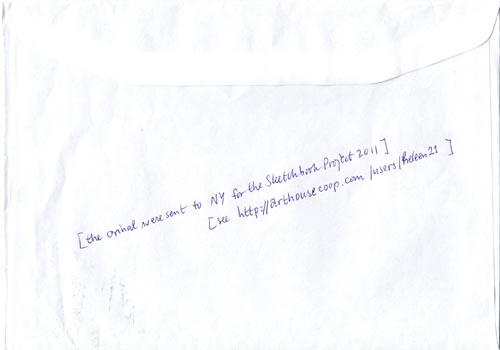 [the orinal were sent to NY for the Sketchbook Project 2011]
[see http://arthousecoop.com/users/heleen21 ]